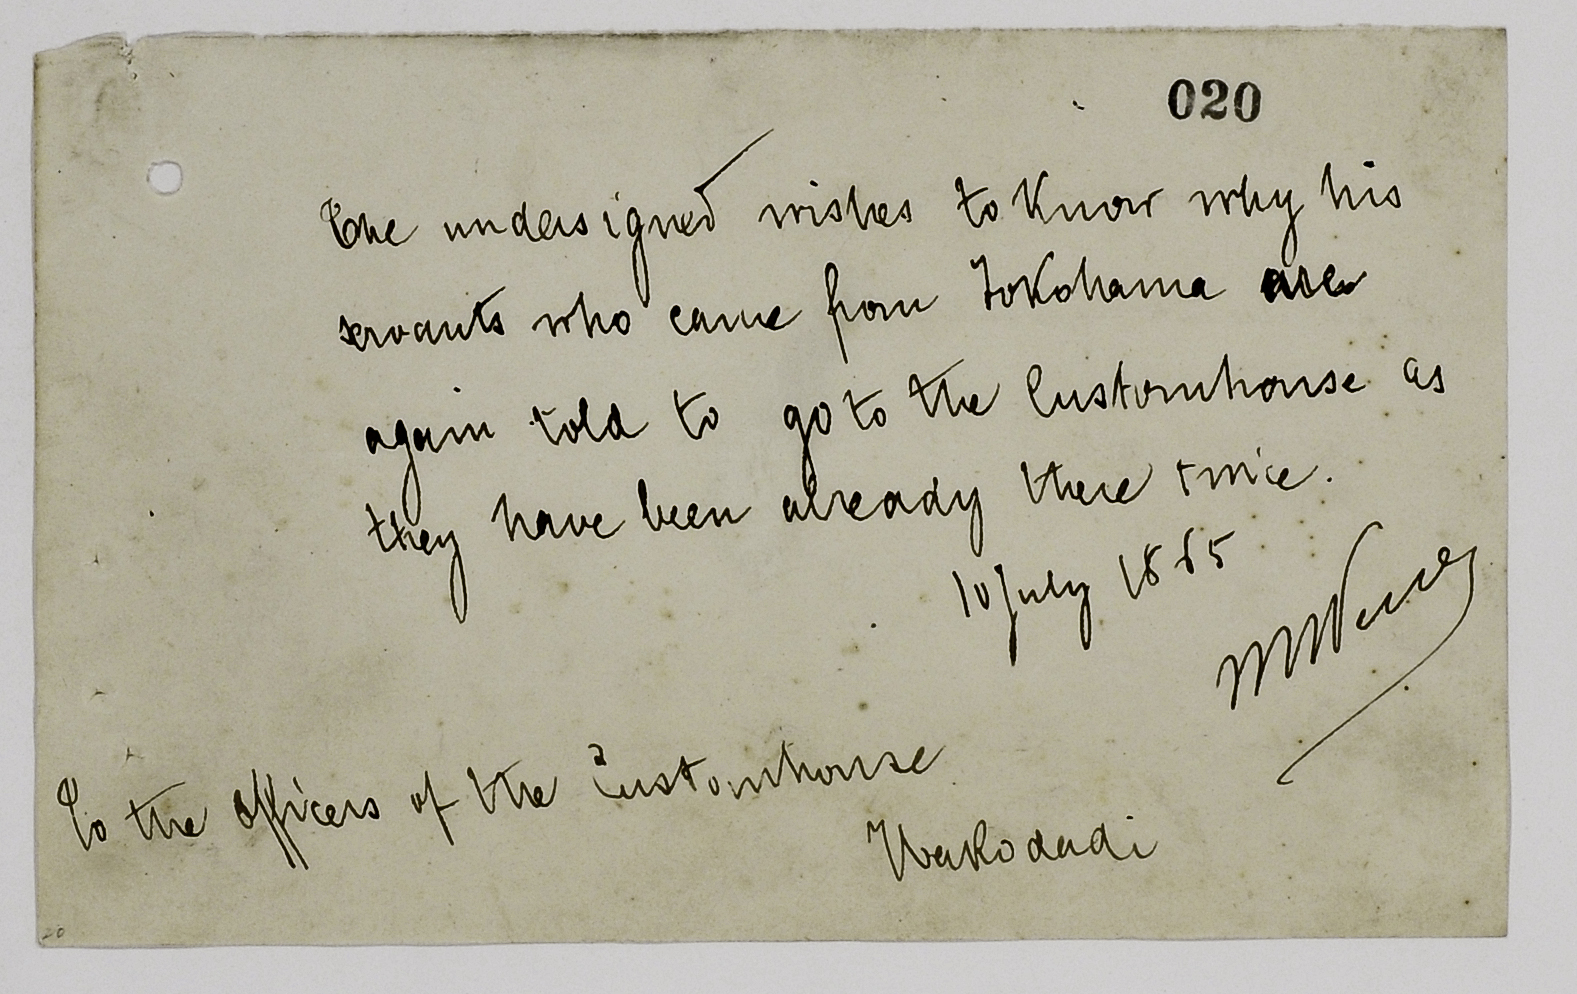 020
The undersigned wishes to Know why his
servants who came from Yokohama are
again told to go to the Customhouse as
they have been already there twice.
10 July 1865
To the Officers of the Customhouse
Hakodadi
20